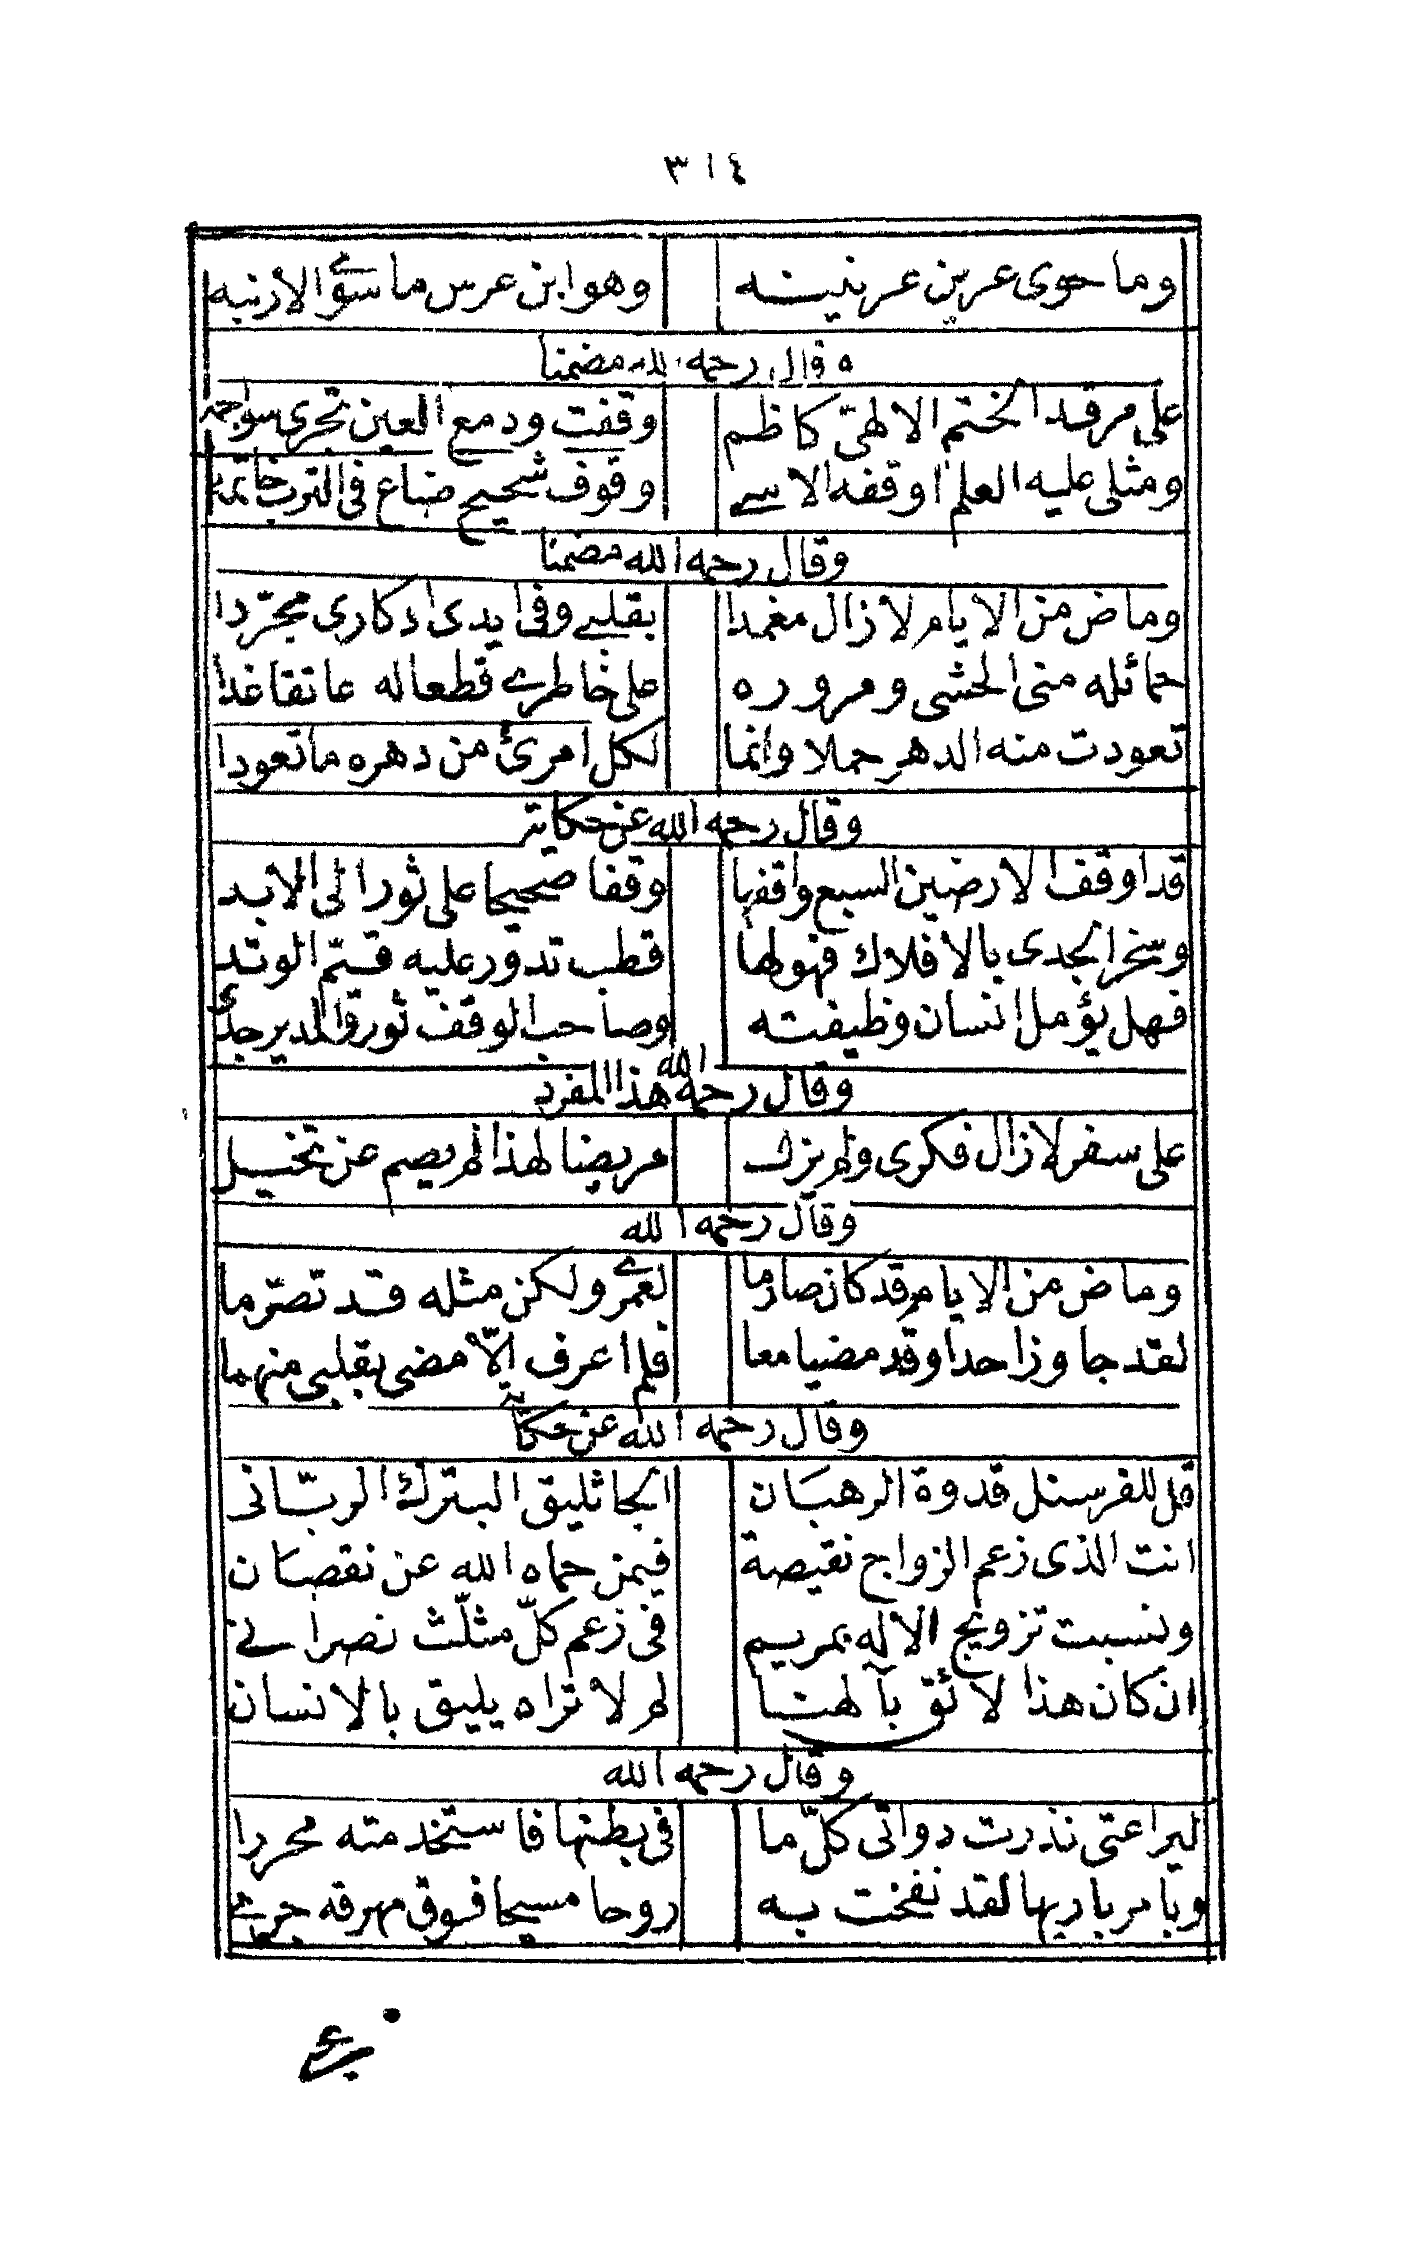 ٣١٤
وما حوى عرين عرينيسه وهو ابن عرس ما سوى الارنبه
وقال رحمه الله مضمنا
على مرقد الختم الالهيّ كاظم وقفت ودمع العين تجرى سواجمه
ومثلى عليه العلم اوقفه الاسى وقوف شحيح ضاع فى الترب خاتمه
وقال رحمه الله مضمنا
وماض من الايام لا زال مغمدا بقلبى وفى ايدى ادكارى مجرّدا
حمائله منى الحشى ومروره على خاطرى قطعا له عاتقا غدا
تعودت منه الدهر حملا وانما لكل امرئ من دهره ما تعودا
وقال رحمه الله عن حكاية
قد اوقف الارضين السبع واقفها وقفا صحيحا على ثور الى الابد
وسخر الجدى بالافلاك فهو لها قطب تدور عليه قيّم الوتد
فهل يؤمل انسان وظيفته وصاحب الوقف ثور والمدير جدى
وقال رحمه الله هذا المفرد
على سفر لا زال فكرى ولم يزل مريضا لهذا لم يصم عن تخيل
وقال رحمه الله
وماض من الايام قد كان صارما لعمرى ولكن مثله قد تصرّما
لقد جاوزا حدا وقد مضيا معا فلم اعرف الّا مضى بقلبى منهما
وقال رحمه الله عن حكاية
قل للفرسنل قدوة الرهبان الجاثليق البترك الربّانى
انت الذى زعم الزواج نقيصة فيمن حماه الله عن نقصان
ونسبت تزويج الاله بمريم فى زعم كلّ مثلّث نصرانى
ان كان هذا لائق بآلهنا لم لا تراه يليق بالانسان
وقال رحمه الله
ليراعتى نذرت دواتى كلّ ما فى بطنها فاستخدمته محررا
وبامر باريها لقد نفخت به روحا مسيحا فوق مهرقه جرى